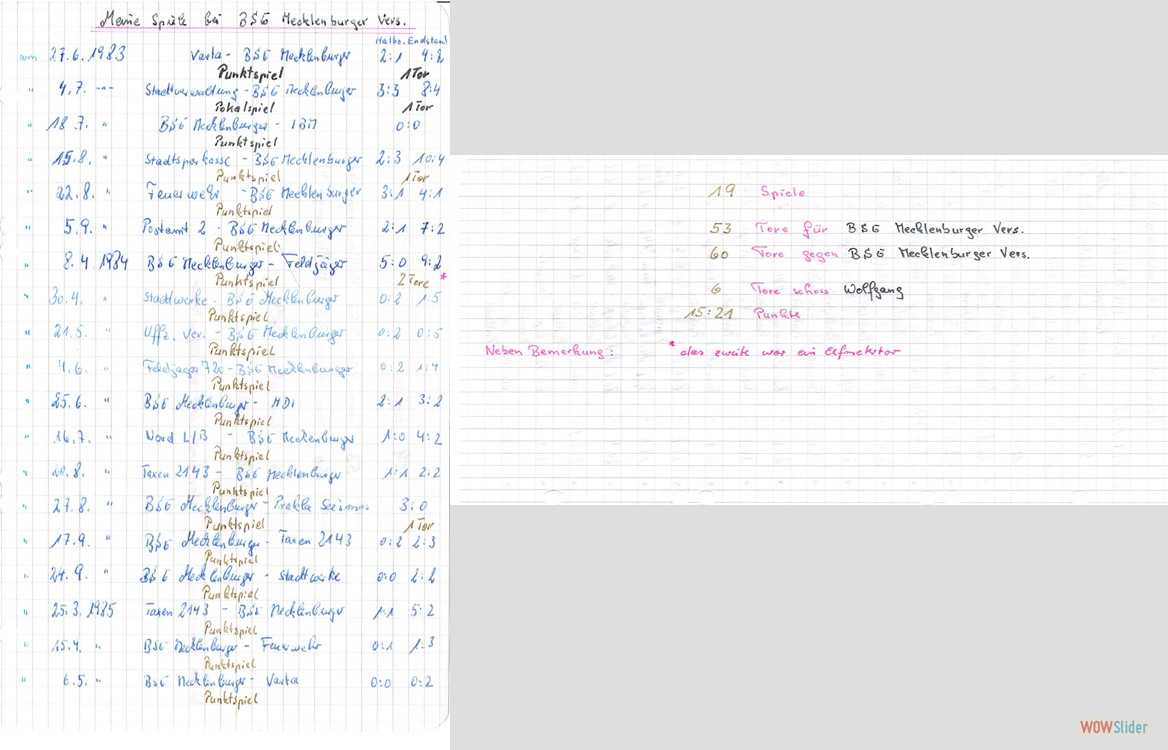 Meine Spiele bei BSG Mecklenburger Vers.
Halbz. Endstand
am 27.6.1983 Varta - BSG Mecklenburger 2:1 4:2
Punktspiel 1 Tor
" 4.7. -"- Stadtverwaltung - BSG Mecklenburger 3:3 8:4
Pokalspiel 1 Tor
" 18.7. " BSG Mecklenburger - IBM 0:0
Punktspiel
" 15.8. " Stadtsparkasse - BSG Mecklenburger 2:3 10:4
Punktspiel 1 Tor
" 22.8. " Feuerwehr - BSG Mecklenburger 3:1 4:1
Punktspiel
" 5.9. " Postamt 2 - BSG Mecklenburger 2:1 7:2
Punktspiel
" 2.4.1984 BSG Mecklenburger - Feldjäger 5:0 9:2
Punktspiel 2 Tore *
" 30.4. " Stadtwerke - BSG Mecklenburger 0:2 1:5
Punktspiel
" 21.5. " Uffz. Ver. - BSG Mecklenburger 0:2 0:5
Punktspiel
" 4.6. " Feldjäger 720 - BSG Mecklenburger 0:2 1:4
Punktspiel
" 25.6. " BSG Mecklenburger - HDI 2:1 3:2
Punktspiel
" 16.7. " Nord L/B - BSG Mecklenburger 1:0 4:2
Punktspiel
" 20.8. " Taxen 2143 - BSG Mecklenburger 1:1 2:2
Punktspiel
" 27.8. " BSG Mecklenburger - Prakla Seismos 3:0
Punktspiel 1 Tor
" 17.9. " BSG Mecklenburger - Taxen 2143 0:2 2:3
Punktspiel
" 24.9. " BSG Mecklenburger - Stadtwerke 0:0 2:2
Punktspiel
" 25.3.1985 Taxen 2143 - BSG Mecklenburger 1:1 5:2
Punktspiel
" 15.4. " BSG Mecklenburger - Feuerwehr 0:1 1:3
Punktspiel
" 6.5. " BSG Mecklenburger - Varta 0:0 0:2
Punktspiel
19 Spiele
53 Tore für BSG Mecklenburger Vers.
60 Tore gegen BSG Mecklenburger Vers.
6 Tore schoss Wolfgang
15:21 Punkte
Neben Bemerkung: * das zweite war ein Elfmetertor
WOWSlider